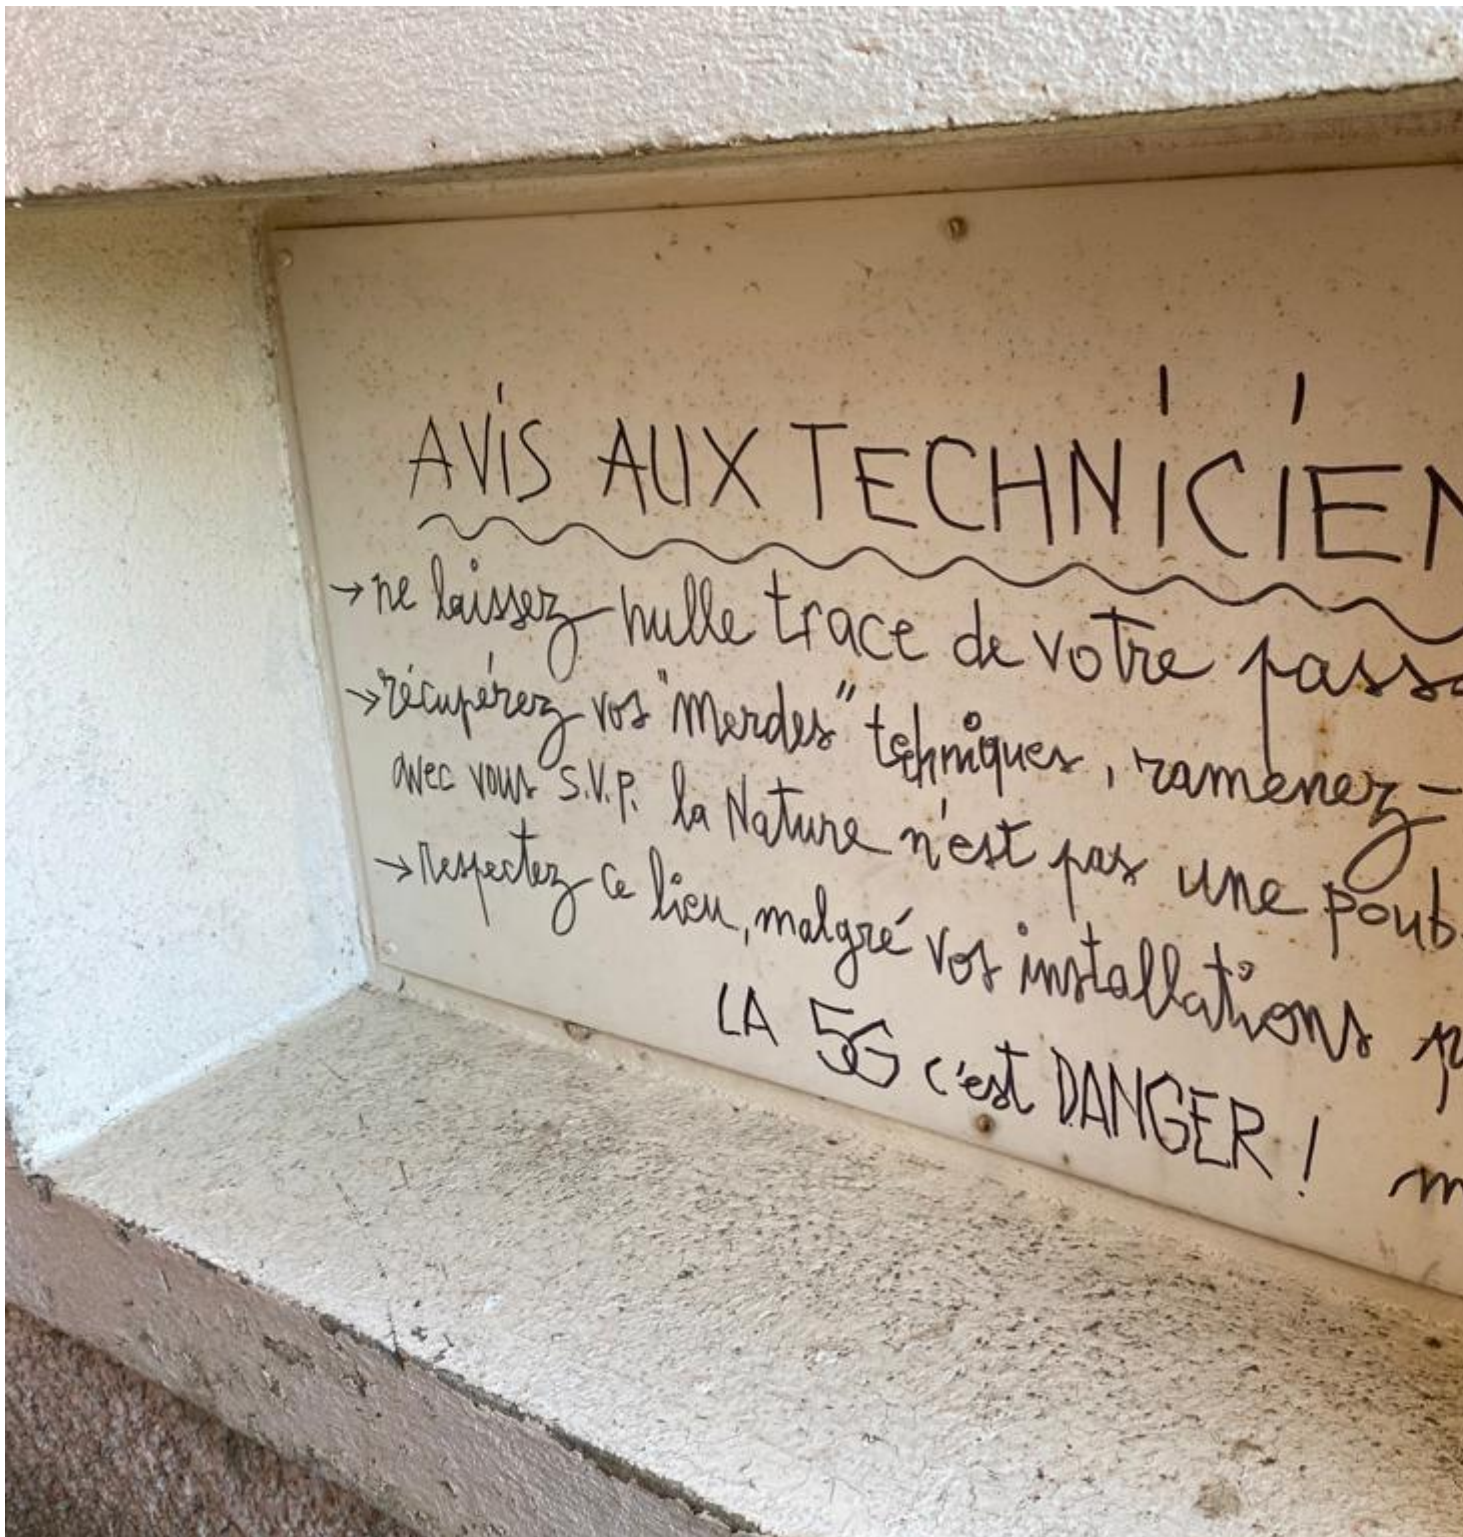 AVIS AUX TECHNICIEN
→ ne laissez nulle trace de votre passa
→ récupérez vos "merdes" techniques, ramenez-
avec vous S.V.P. la Nature n'est pas une poub
→ respectez ce lieu, malgré vos installations
LA 5G c'est DANGER !